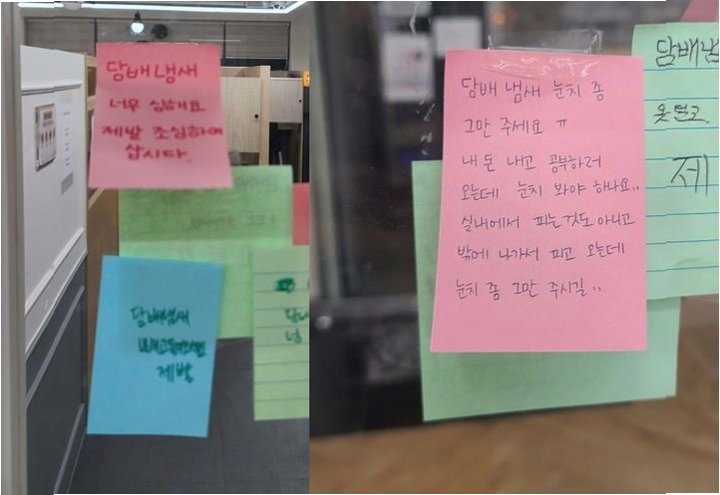 담배냄새
너무 심해요
제발 조심하며
삽시다.
담배냄새
빼고들어오세요
제발
담배 냄새 눈치 좀
그만 주세요 ㅠ
내 돈 내고 공부하러
오는데 눈치 봐야 하나요..
실내에서 피는것도 아니고
밖에 나가서 피고 오는데
눈치 좀 그만 주시길..
담배냄
옷 털고
제